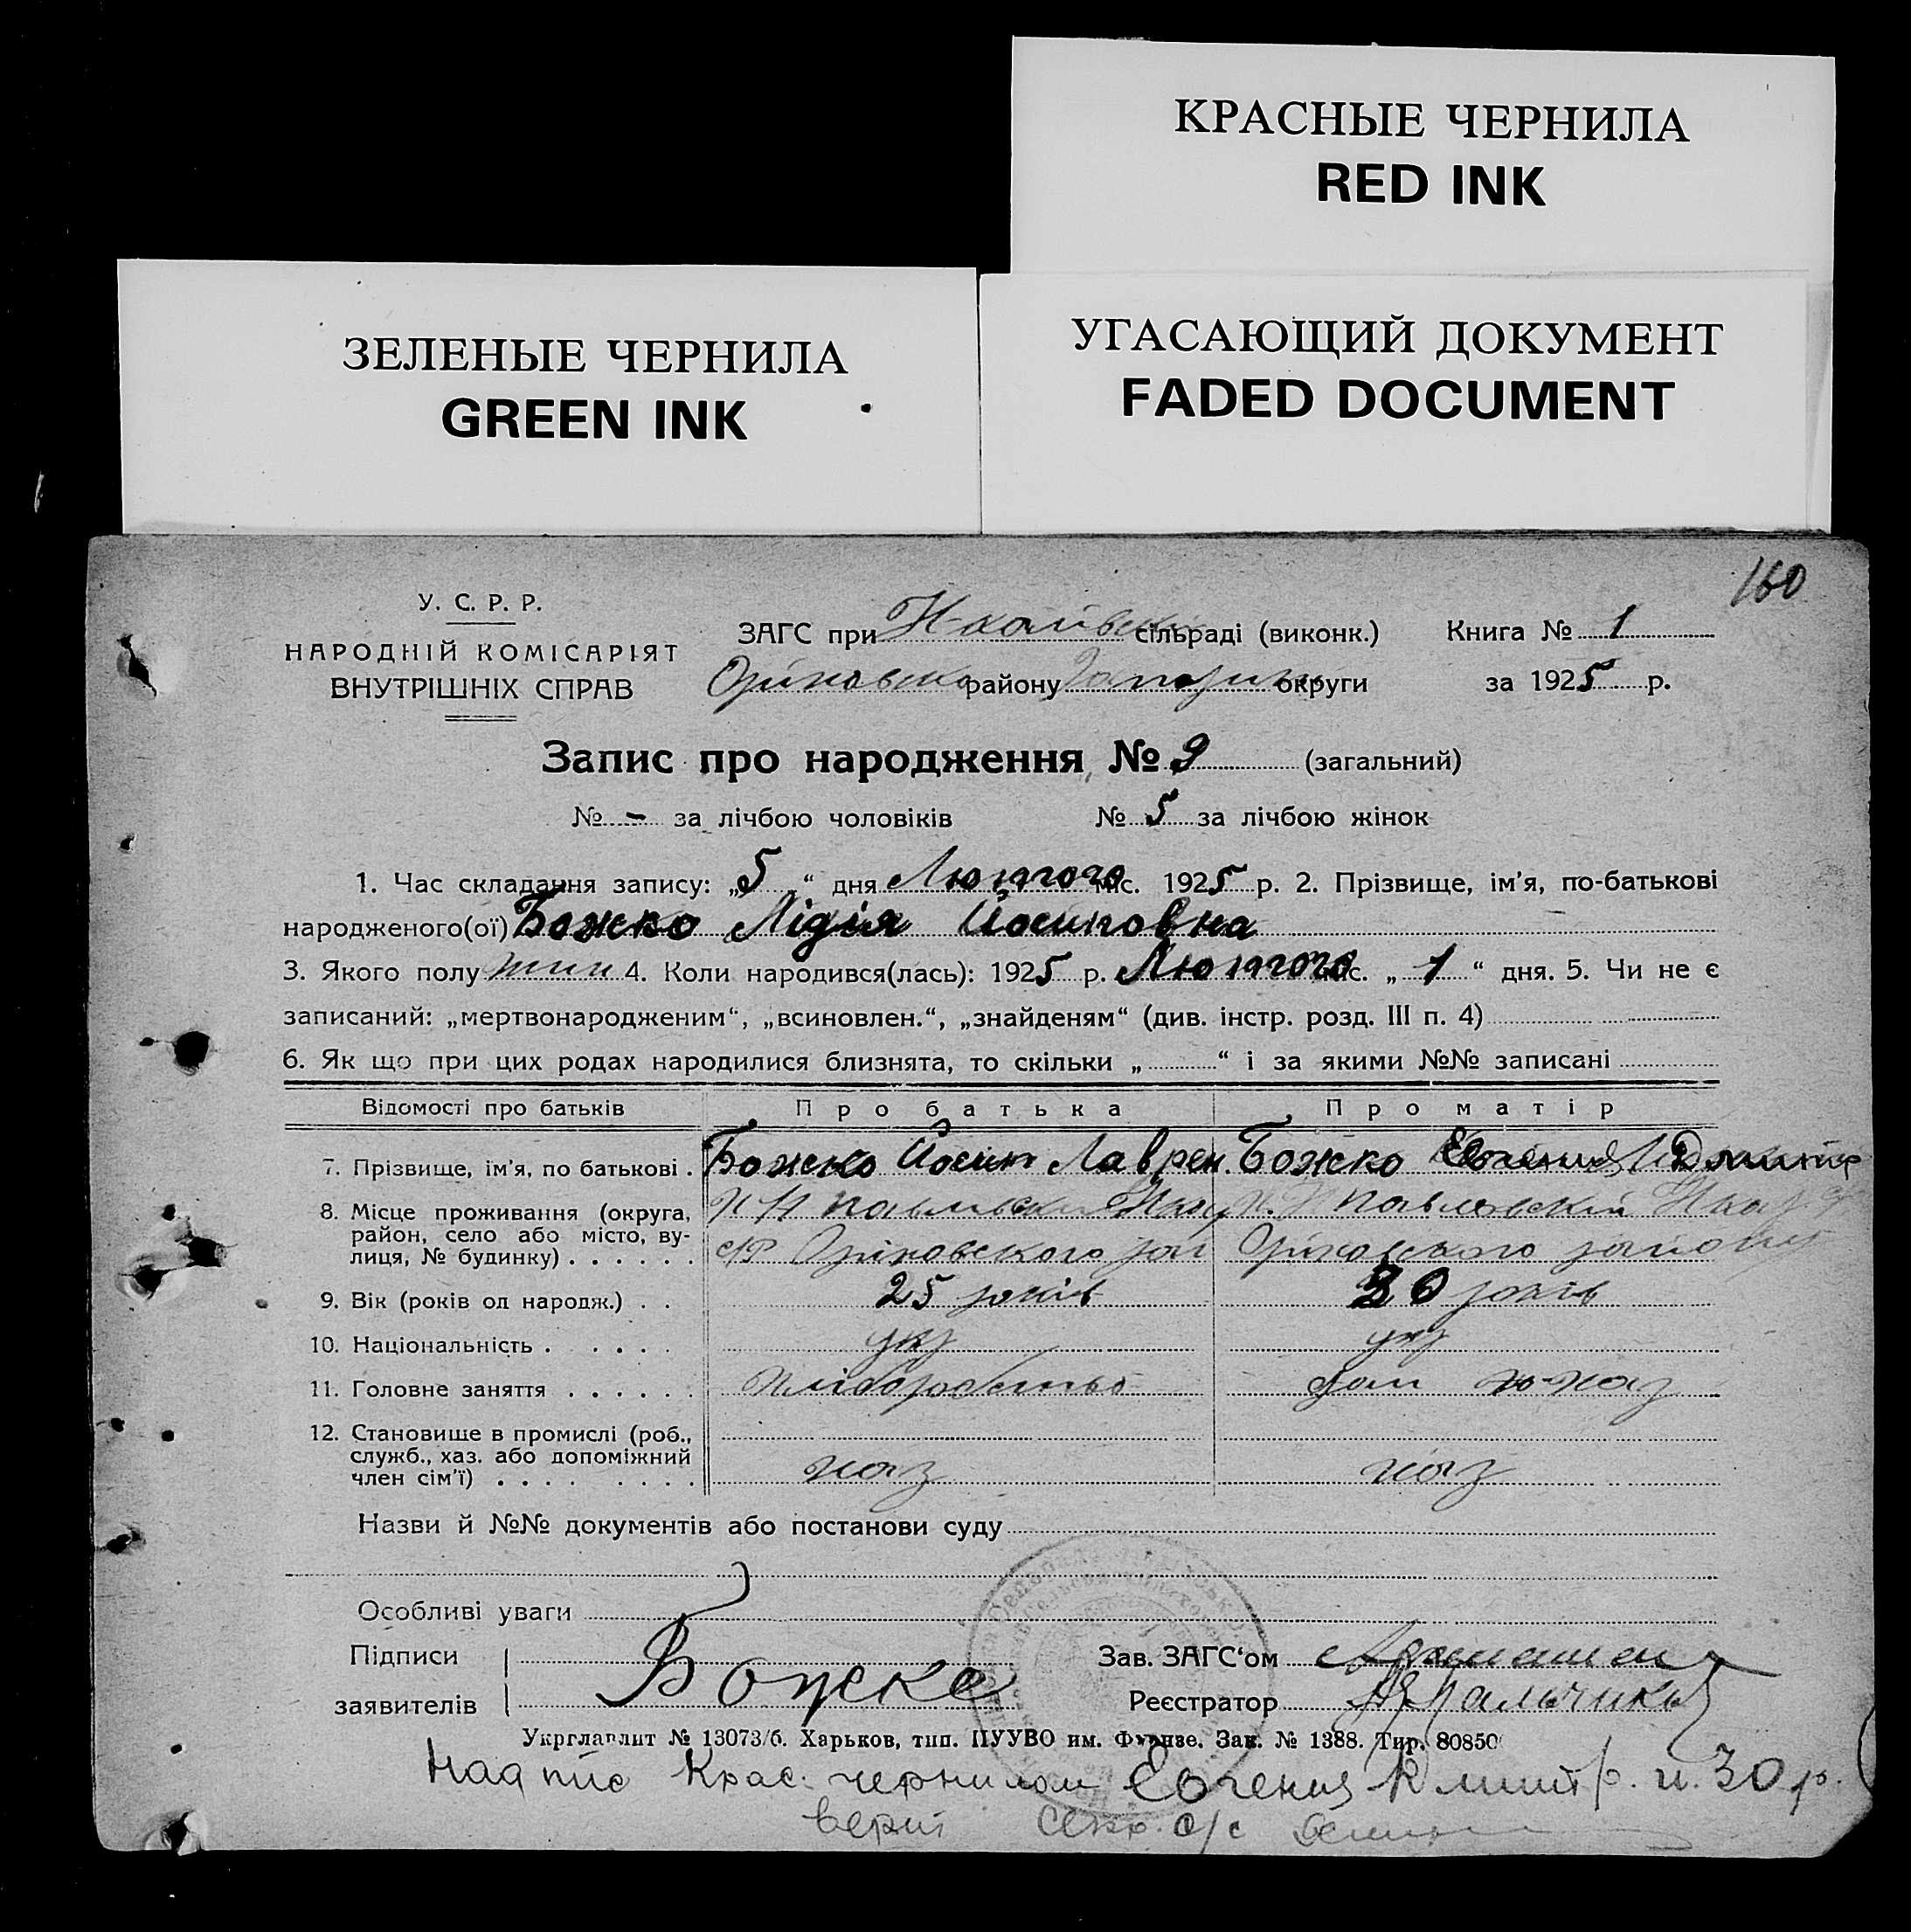 КРАСНЫЕ ЧЕРНИЛА
RED INK
ЗЕЛЕНЫЕ ЧЕРНИЛА
GREEN INK
УГАСАЮЩИЙ ДОКУМЕНТ
FADED DOCUMENT
160
У. С. Р. Р.
НАРОДНІЙ КОМІСАРІЯТ
ВНУТРІШНІХ СПРАВ
ЗАГС при сільраді (виконк.) Книга № 1
району округи за 1925 р.
Запис про народження № 9 (загальний)
№ - за лічбою чоловіків № 5 за лічбою жінок
1. Час складання запису: „5“ дня Лютого міс. 1925 р. 2. Прізвище, ім'я, по-батькові
народженого(ої) Божко Лідія Йосиповна
3. Якого полу жин 4. Коли народився(лась): 1925 р. Лютого міс. „1“ дня. 5. Чи не є
записаний: „мертвонародженим“, „всиновлен.“, „знайденям“ (див. інстр. розд. III п. 4)
6. Як що при цих родах народилися близнята, то скільки „ “ і за якими №№ записані
Відомості про батьків Про батька Про матір
7. Прізвище, ім'я, по батькові . Божко Йосип Лаврен. Божко Евгения Дмитр
8. Місце проживання (округа, район, село або місто, вулиця, № будинку) . . . . . .
с/р Оріховского рай Оріховського району
9. Вік (років од народж.) . . 25 років 30 років
10. Національність . . . . . укр укр
11. Головне заняття . . . . . . Хліборобство дом
12. Становище в промислі (роб.,
служб., хаз. або допоміжний
член сім'ї) . . . . . . . . хаз хаз
Назви й №№ документів або постанови суду
Особливі уваги
Підписи Божко Зав. ЗАГС‘ом
заявителів Реєстратор
Укрглавлит № 13073/б. Харьков, тип. ПУУВО им. Фрунзе. Зак. № 1388. Тир. 80850
Надпис Крас. чернилом Евгения Дмитр. и. 30 р.
верит Секр. с/с